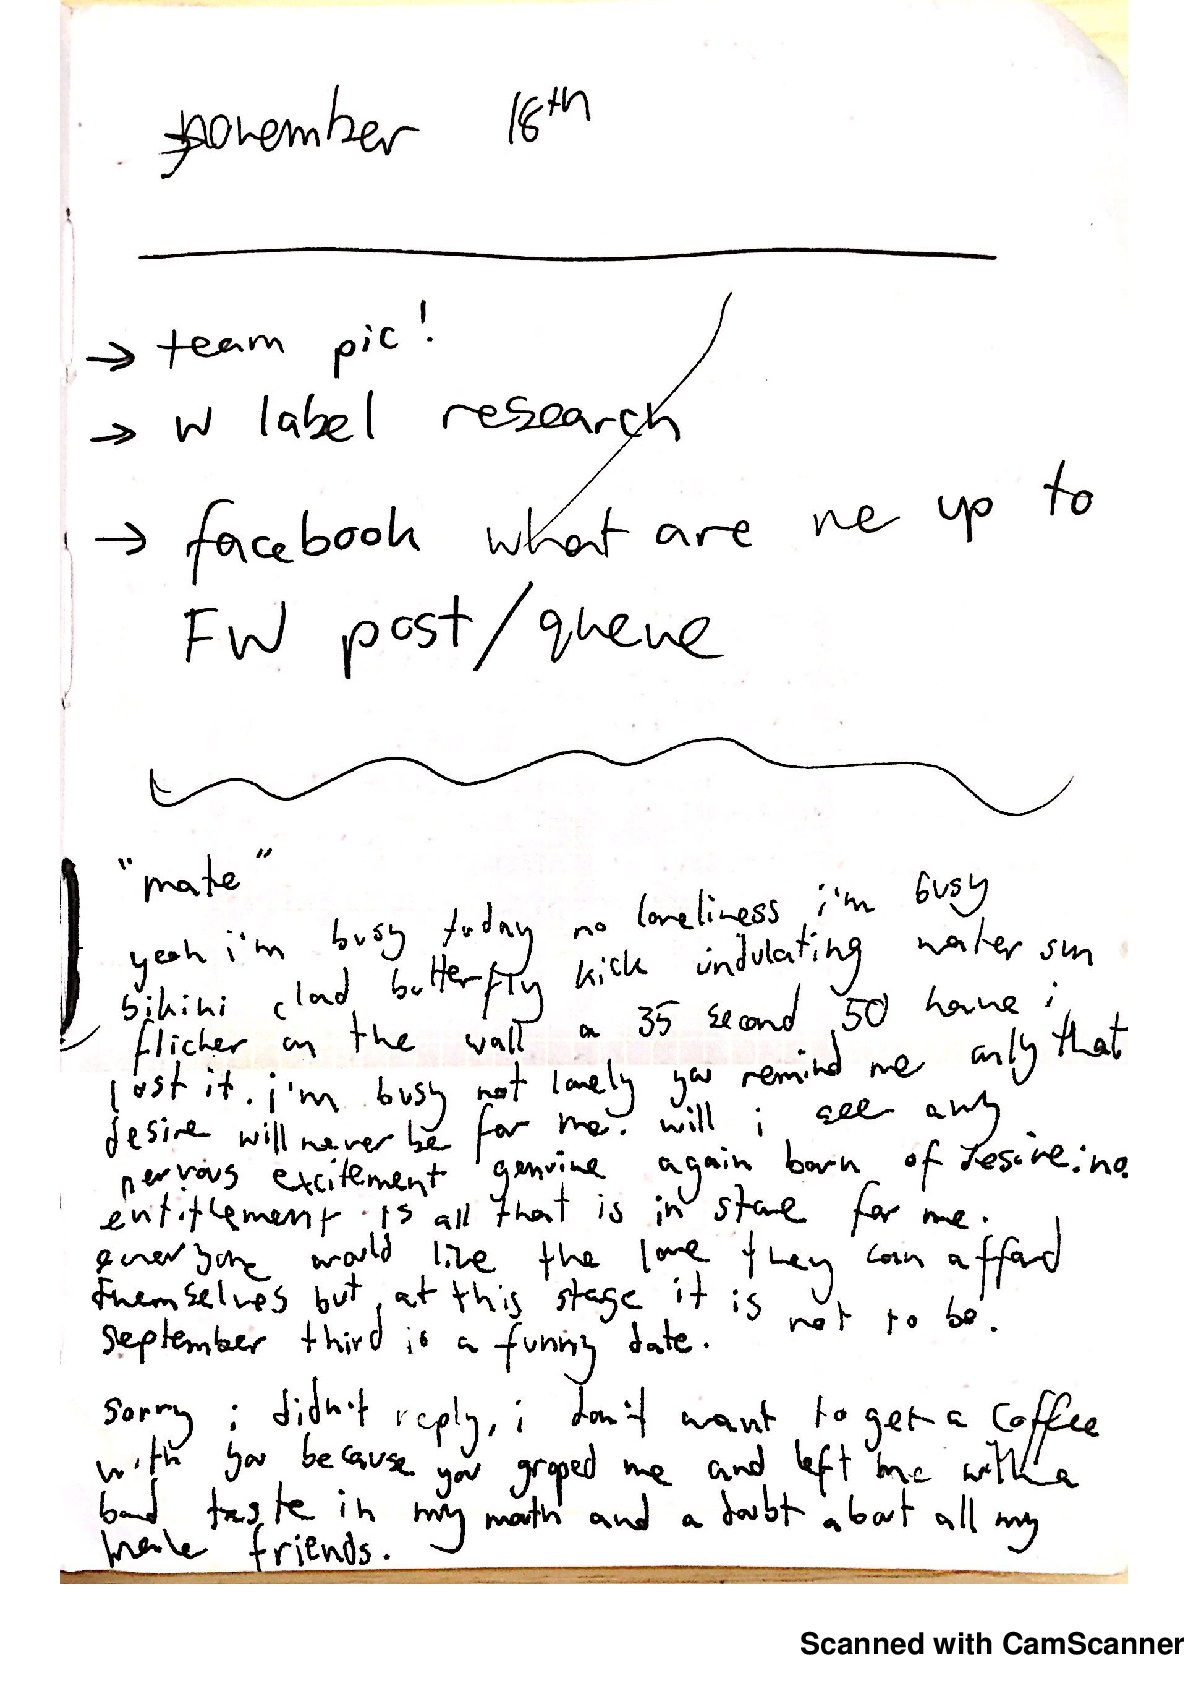 november 18th
→ team pic!
→ W label research
→ facebook what are we up to
FW post/queue
"mate"
yeah i'm busy today no loneliness i'm busy
bikini clad butterfly kick undulating water sun
flicker on the wall a 35 second 50 have i
lost it. i'm busy not lonely you remind me only that
desire will never be for me. will i see any
nervous excitement genuine again born of desire: no.
entitlement is all that is in store for me.
everyone would like the love they can afford
themselves but at this stage it is not to be.
september third is a funny date.
sorry i didn't reply, i don't want to get a coffee
with you because you groped me and left me with a
bad taste in my mouth and a doubt about all my
male friends.
Scanned with CamScanner